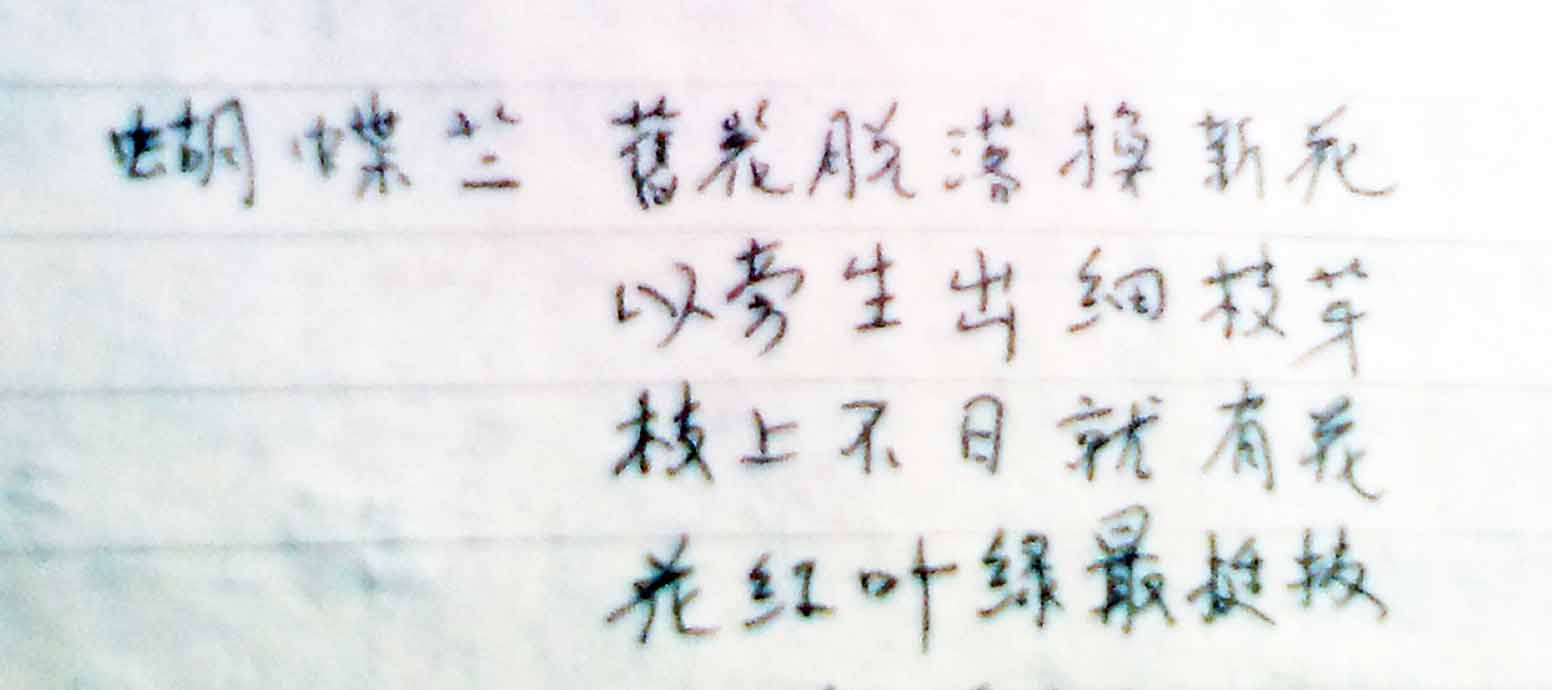 蝴蝶兰 舊花脱落换新花
以旁生出细枝芽
枝上不日就有花
花红叶绿最挺拔